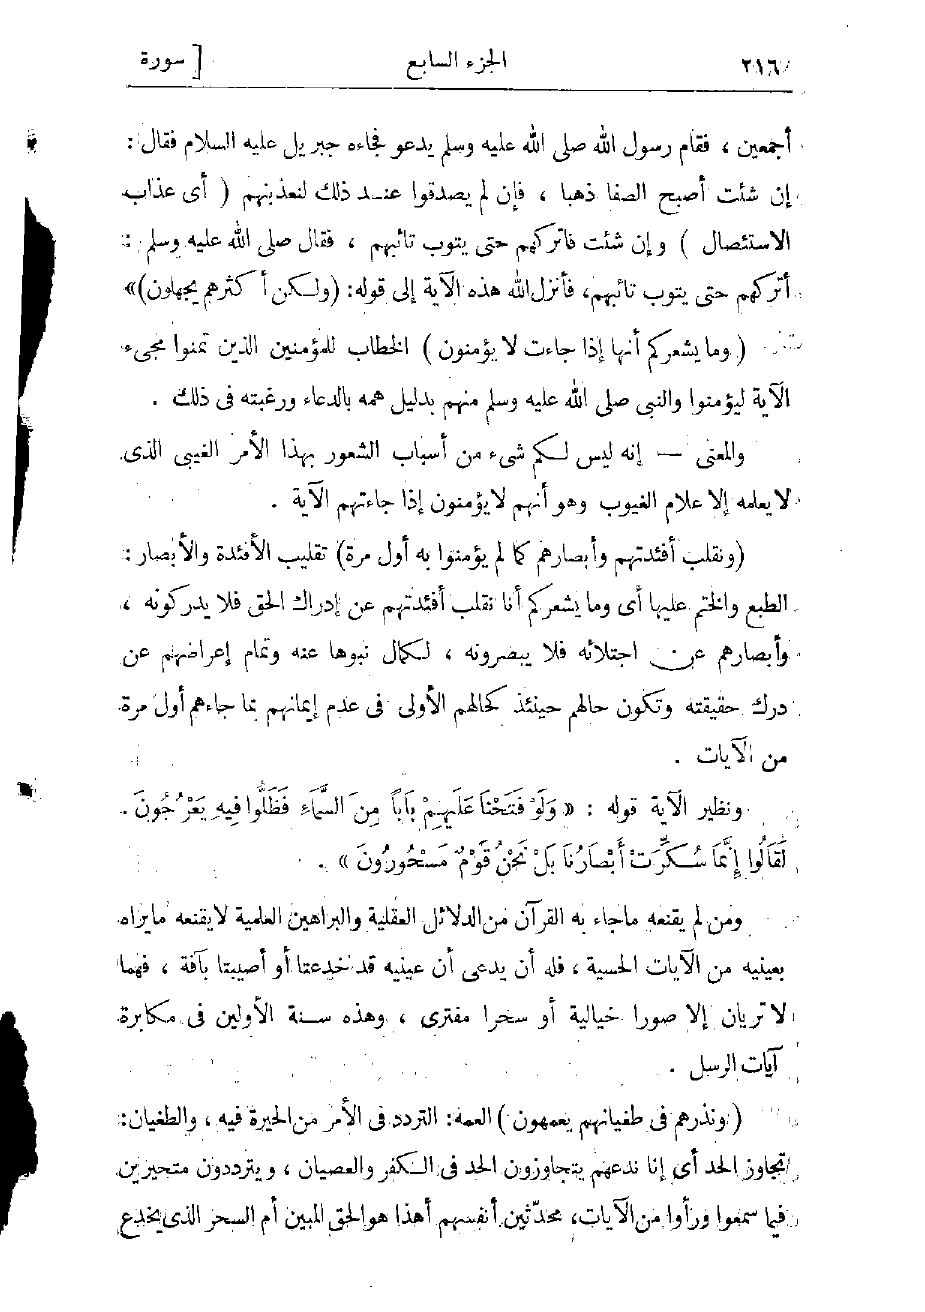 ٢١٦ الجزء السابع [ سورة
أجمعين ، فقام رسول الله صلى الله عليه وسلم يدعو فجاءه جبريل عليه السلام فقال :
إن شئت أصبح الصفا ذهبا ، فإن لم يصدقوا عند ذلك لنعذبنهم ( أى عذاب
الاستئصال ) وإن شئت فاتركهم حتى يتوب تائبهم ، فقال صلى الله عليه وسلم :
أتركهم حتى يتوب تائبهم، فأنزل الله هذه الآية إلى قوله: (ولكن أكثرهم يجهلون)»
( وما يشعركم أنها إذا جاءت لا يؤمنون ) الخطاب للمؤمنين الذين تمنوا مجىء
الآية ليؤمنوا والنبى صلى الله عليه وسلم منهم بدليل همه بالدعاء ورغبته فى ذلك .
والمعنى — إنه ليس لكم شىء من أسباب الشعور بهذا الأمر الغيبى الذى
لا يعلمه إلا علام الغيوب وهو أنهم لا يؤمنون إذا جاءتهم الآية .
(ونقلب أفئدتهم وأبصارهم كما لم يؤمنوا به أول مرة) تقليب الأفئدة والأبصار :
الطبع والختم عليها أى وما يشعركم أنا نقلب أفئدتهم عن إدراك الحق فلا يدركونه ،
وأبصارهم عن اجتلائه فلا يبصرونه ، لكمال نبوها عنه وتمام إعراضهم عن
درك حقيقته وتكون حالهم حينئذ كحالهم الأولى فى عدم إيمانهم بما جاءهم أول مرة
من الآيات .
ونظير الآية قوله : « وَلَوْ فَتَحْنَا عَلَيْهِمْ بَابًا مِنَ السَّمَاءِ فَظَلُّوا فِيهِ يَعْرُجُونَ .
لَقَالُوا إِنَّمَا سُكِّرَتْ أَبْصَارُنَا بَلْ نَحْنُ قَوْمٌ مَسْحُورُونَ » .
ومن لم يقنعه ماجاء به القرآن من الدلائل العقلية والبراهين العلمية لا يقنعه مايراه
بعينيه من الآيات الحسية ، فله أن يدعى أن عينيه قد خدعتا أو أصيبتا بآفة ، فهما
لا تريان إلا صورا خيالية أو سحرا مفترى ، وهذه سنة الأولين فى مكابرة
آيات الرسل .
( ونذرهم فى طغيانهم يعمهون ) العمه: التردد فى الأمر من الحيرة فيه ، والطغيان:
تجاوز الحد أى إنا ندعهم يتجاوزون الحد فى الكفر والعصيان ، ويترددون متحيرين
فيما سمعوا ورأوا من الآيات، محدّثين أنفسهم أهذا هو الحق المبين أم السحر الذى يخدع